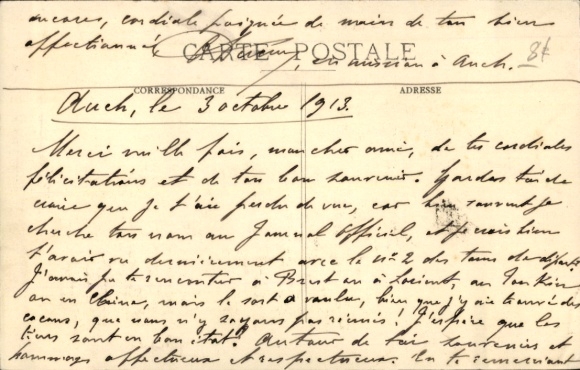 encore, cordiale poignée de mains de ton bien
affectionné
CARTE POSTALE
en mission à Auch.
8f
CORRESPONDANCE
ADRESSE
Auch, le 3 octobre 1913.
Merci mille fois, mon cher ami, de tes cordiales
félicitations et de ton bon souvenir. Gardes toi de
croire que je t'aie perdu de vue, car bien souvent je
cherche ton nom au Journal Officiel, et je crois bien
t'avoir vu dernièrement avec le nº 2 des tours de départ.
J'aurais pu te rencontrer à Brest ou à Lorient, au Tonkin
ou en Chine, mais le sort a voulu, bien que j'y aie trouvé des
cocons, que nous n'y soyons pas réunis! J'espère que les
tiens sont en bon état? Autour de toi souvenirs et
hommages affectueux et respectueux. En te remerciant